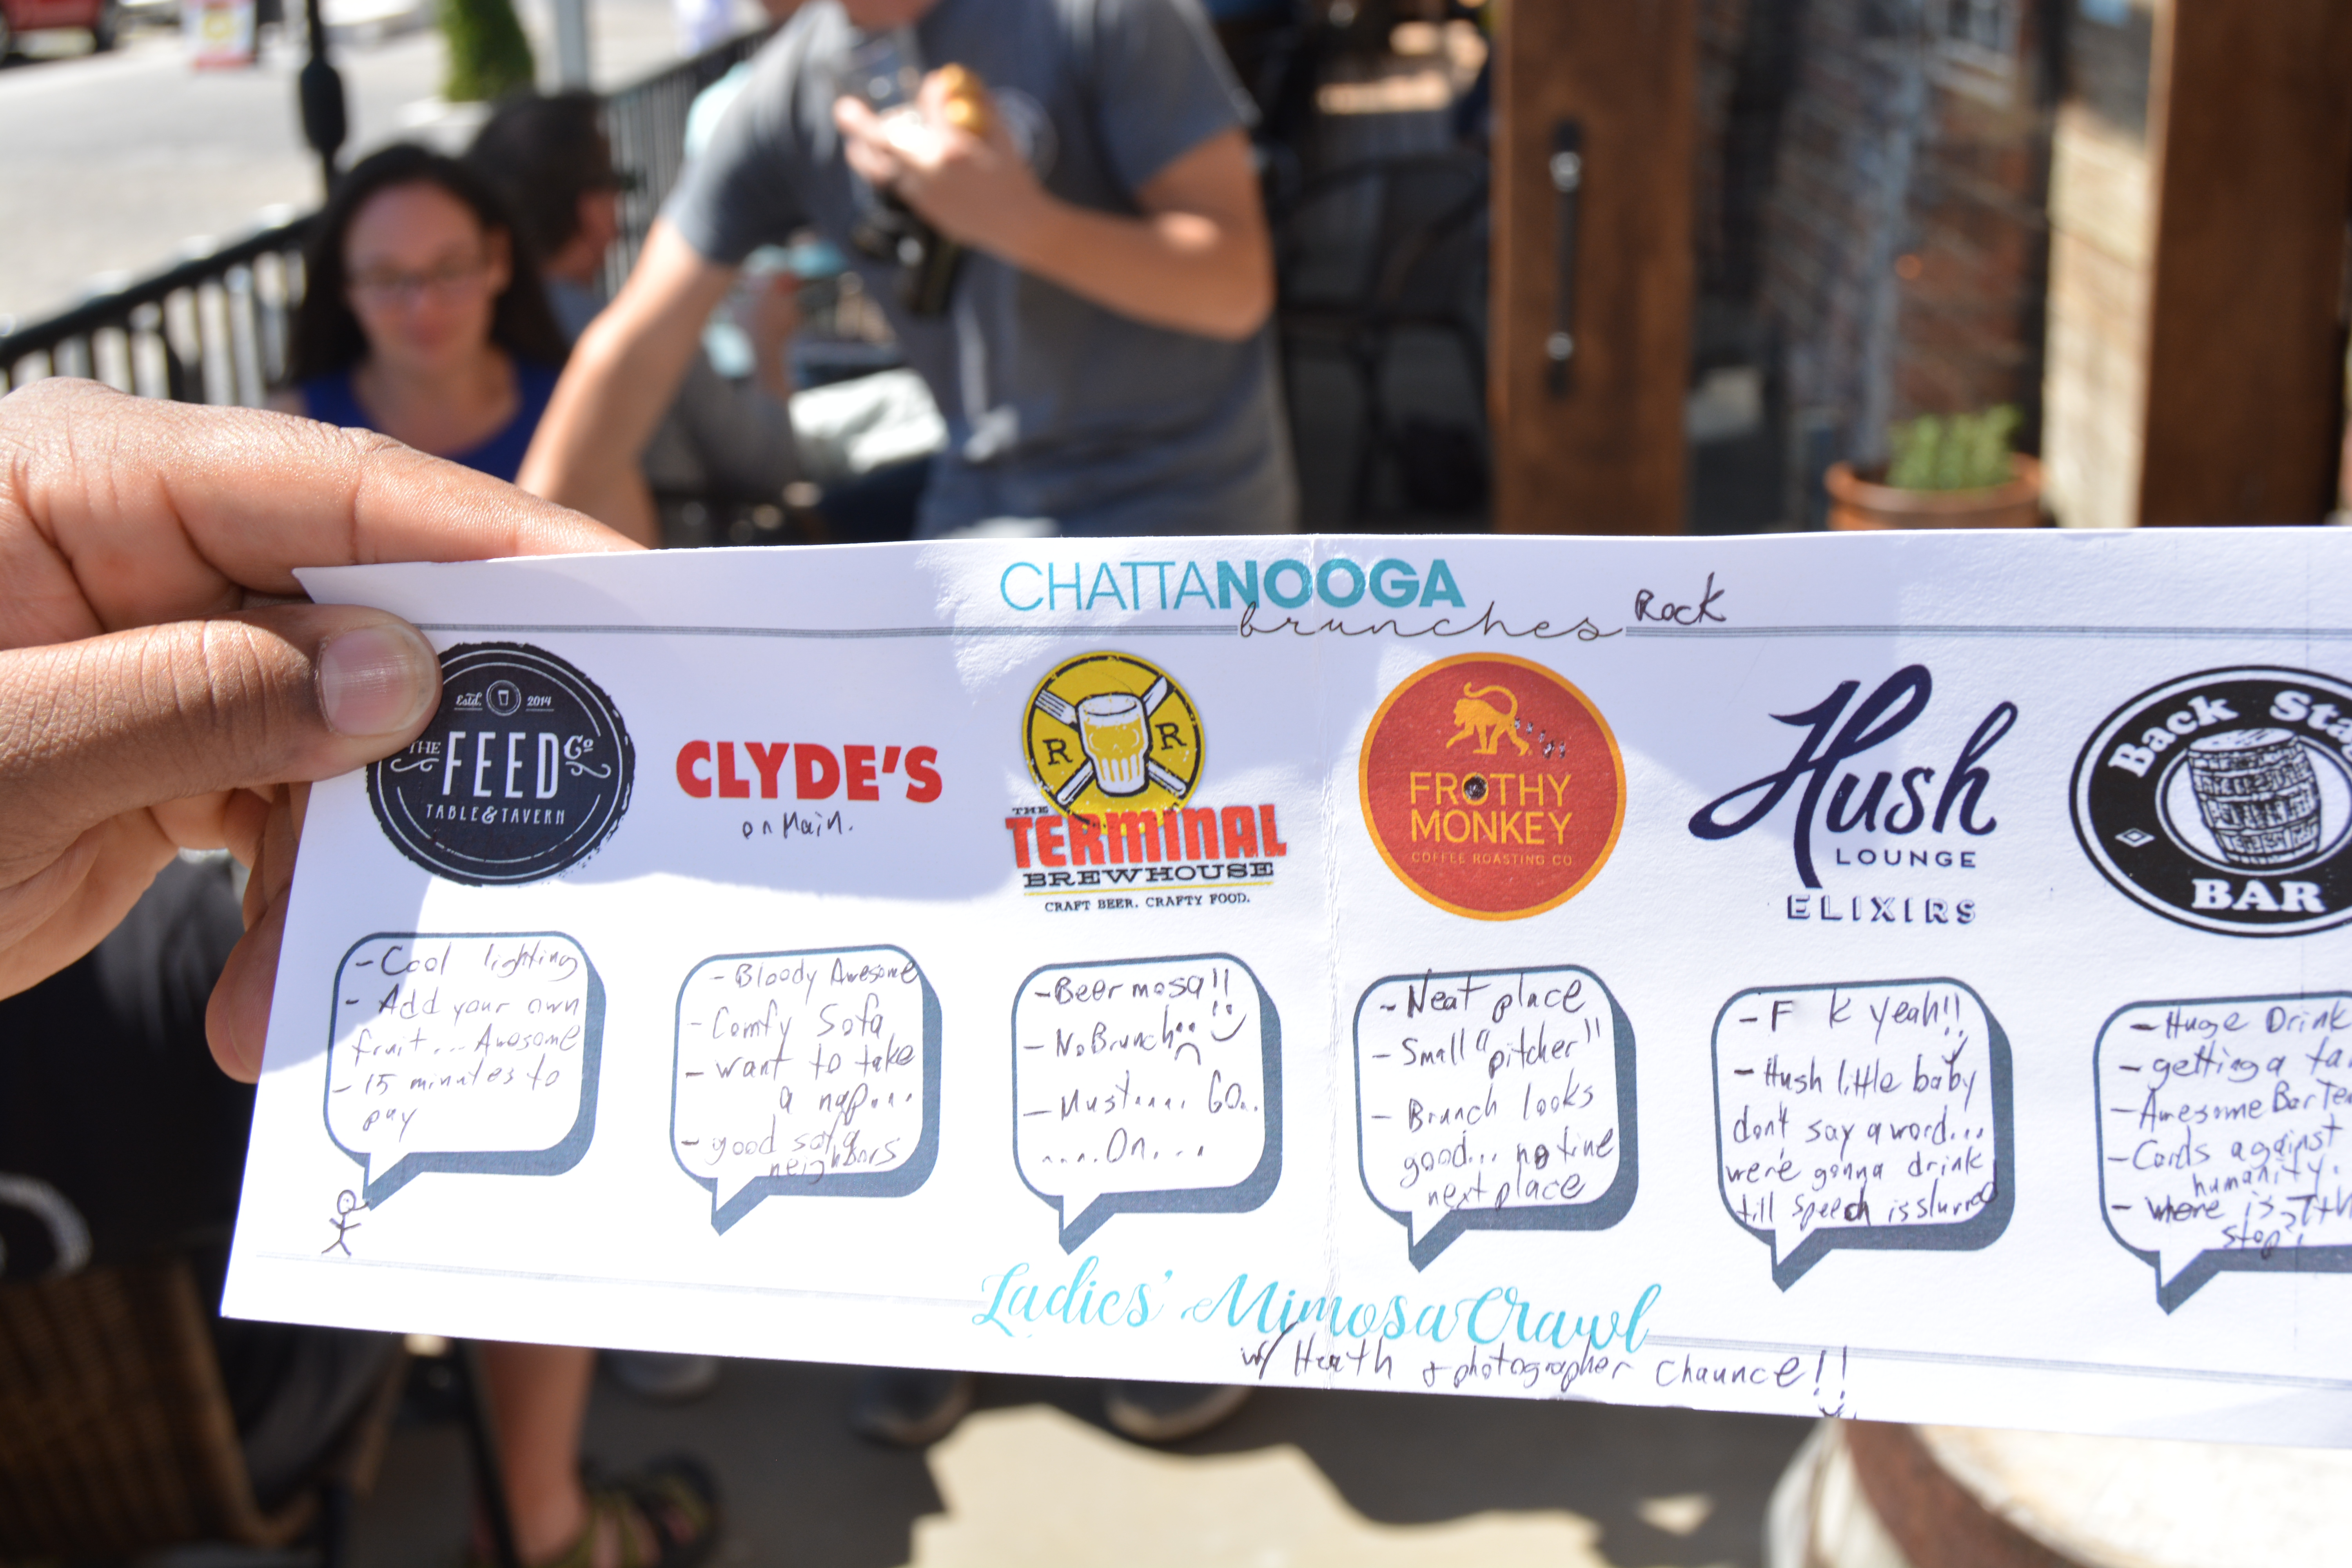 CHATTANOOGA
brunches Rock
Estd. 2014
THE FEED Co
TABLE & TAVERN
CLYDE'S
on Main.
R R
THE
TERMINAL
BREWHOUSE
CRAFT BEER. CRAFTY FOOD.
FROTHY
MONKEY
COFFEE ROASTING CO
Hush
LOUNGE
ELIXIRS
Back Sta
BAR
- Cool lighting
- Add your own
fruit... Awesome
- 15 minutes to
pay
- Bloody Awesome
- Comfy Sofa
- want to take
a nap...
- good sofa
neighbors
- Beermosa!!
- No Brunch
- Must.... GO..
....On....
- Neat place
- Small "pitcher"
- Brunch looks
good... no time
next place
- F k yeah!!
- Hush little baby
don't say a word...
we're gonna drink
till speech is slurred
- Huge Drink
- getting a ta
- Awesome Barte
- Cards against
humanity.
- where is 7th
stop?!
Ladies' Mimosa Crawl
w/ Heath & photographer Chaunce!!